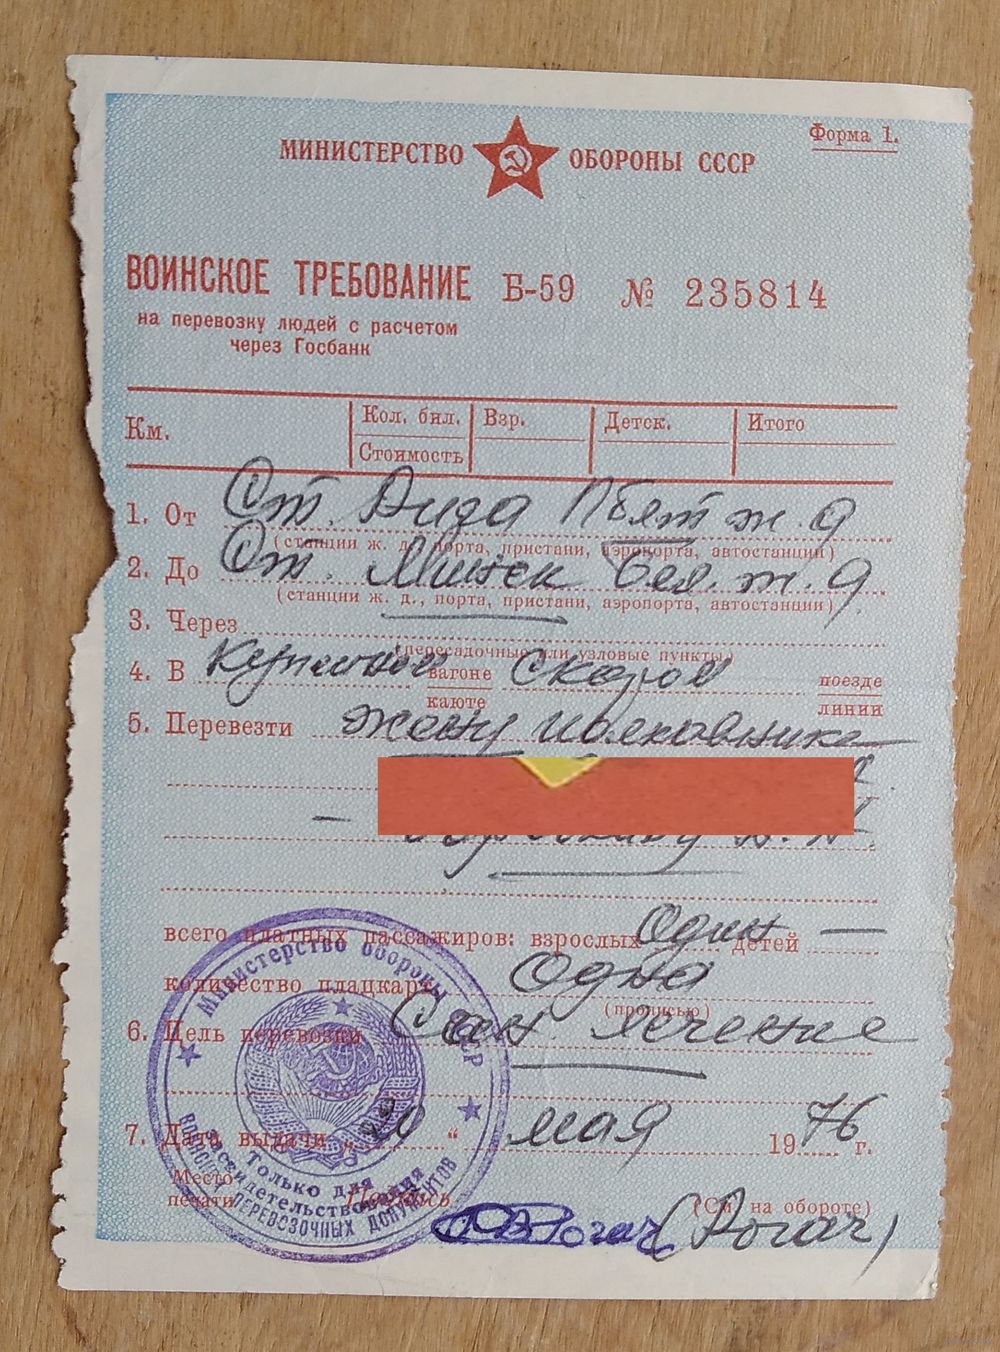 Форма 1.
МИНИСТЕРСТВО ОБОРОНЫ СССР
ВОИНСКОЕ ТРЕБОВАНИЕ Б-59 № 235814
на перевозку людей с расчетом
через Госбанк
Км. Кол. бил. Взр. Детск. Итого
Стоимость
1. От Ст. ж. д
(станции ж. д., порта, пристани, аэропорта, автостанции)
2. До Ст. Минск Бел. ж. д.
(станции ж. д., порта, пристани, аэропорта, автостанции)
3. Через
(пересадочные или узловые пункты)
4. В Купейном вагоне скором поезде
каюте линии
5. Перевезти жену полковника
всего платных пассажиров: взрослых Один детей —
количество плацкарт Одна
(прописью)
6. Цель перевозки Сан. лечение
7. Дата выдачи мая 1976 г.
Место печати Подпись (См. на обороте)
Рогач (Рогач)
Министерство обороны СССР
Только для
засвидетельствования
воинских перевозочных документов